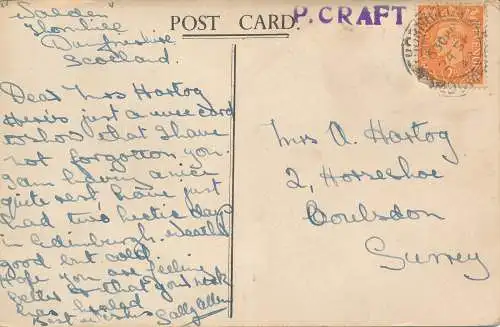 Thornhill
Dumfriesshire
Scotland.
POST CARD.
P. CRAFT
Dear Mrs Hartog
Here's just a wee card
to show that I have
not forgotten you.
I am having a nice
quite rest, have just
had two hectic days
in Edinburgh. Weather
good but cold.
Hope you are feeling
better & that your neck
has healed
Best wishes Sally Allen
Mrs A. Hartog
2, Horseshoe
Coulsdon
Surrey